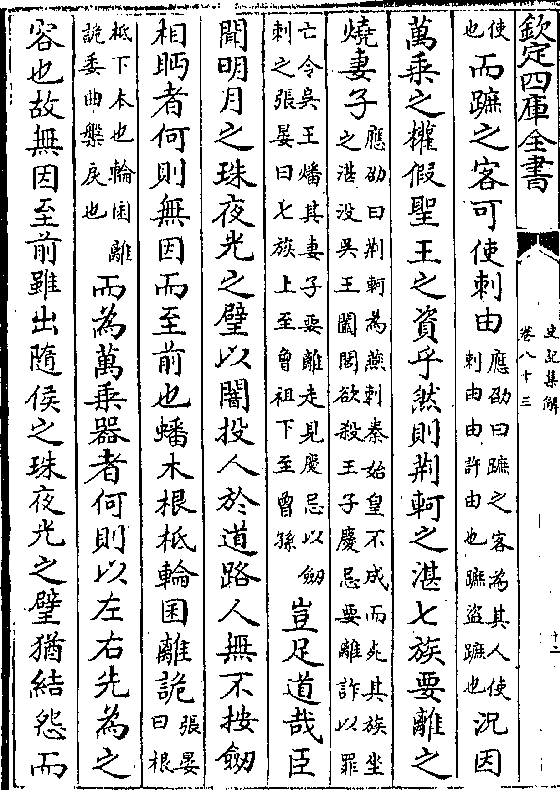 欽定四庫全書
史記集解
卷八十三
十二
使也而蹠之客可使刺由應劭曰蹠之客為其人使刺由由許由也蹠盜蹠也況因
萬乗之權假聖王之資乎然則荆軻之湛七族要離之
燒妻子應劭曰荆軻為燕刺秦始皇不成而死其族坐之湛没吳王闔閭欲殺王子慶忌要離詐以罪
亡令吳王燔其妻子要離走見慶忌以劒刺之張晏曰七族上至曾祖下至曾孫豈足道哉臣
聞明月之珠夜光之璧以闇投人於道路人無不按劒
相眄者何則無因而至前也蟠木根柢輪囷離詭張晏曰根
柢下本也輪囷離詭委曲槃戾也而為萬乗器者何則以左右先為之
容也故無因至前雖出隨侯之珠夜光之璧猶結怨而